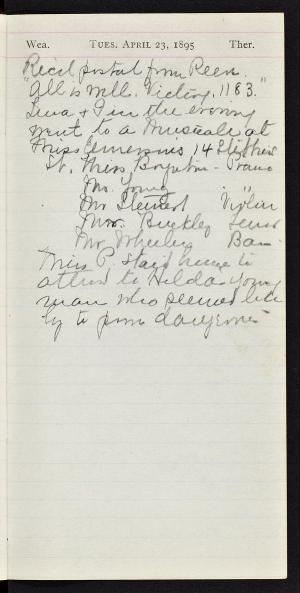 Wea. TUES. APRIL 23, 1895 Ther.
Recd postal from Reen.
"All is well. Victory, 1183."
Lena & I in the evening
went to a Musicale at
Miss Emersons 14 St
St. Miss Boynton - Piano
Mr. Young " "
Mr Stewart Violin
Mr. Buckley Tenor
Mr Wheeler Bar-
Miss P. staid here to
attend to Hilda & young
man who seemed like
ly to prove dangerous